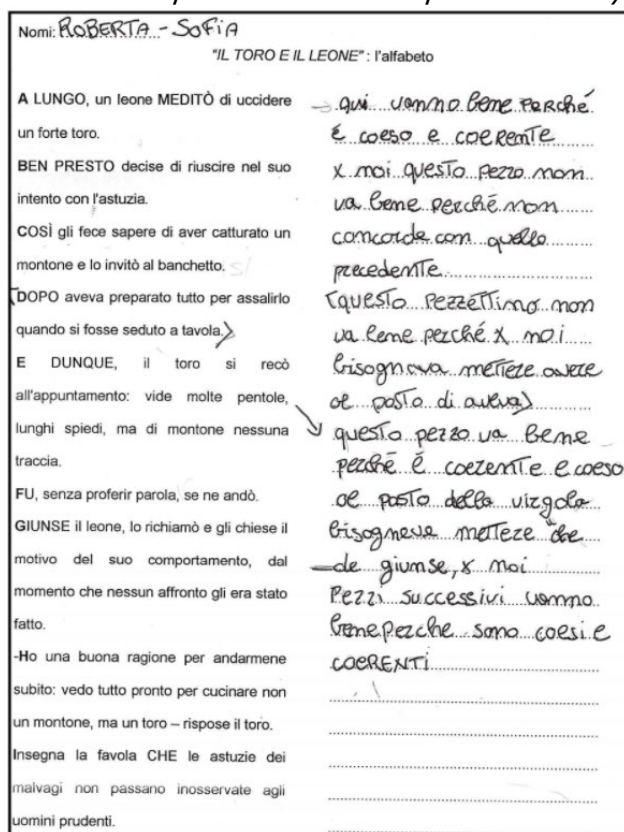 Nomi: ROBERTA - SOFIA
"IL TORO E IL LEONE" : l'alfabeto
A LUNGO, un leone MEDITÒ di uccidere
un forte toro.
BEN PRESTO decise di riuscire nel suo
intento con l'astuzia.
COSÌ gli fece sapere di aver catturato un
montone e lo invitò al banchetto.
DOPO aveva preparato tutto per assalirlo
quando si fosse seduto a tavola.
E DUNQUE, il toro si recò
all'appuntamento: vide molte pentole,
lunghi spiedi, ma di montone nessuna
traccia.
FU, senza proferir parola, se ne andò.
GIUNSE il leone, lo richiamò e gli chiese il
motivo del suo comportamento, dal
momento che nessun affronto gli era stato
fatto.
-Ho una buona ragione per andarmene
subito: vedo tutto pronto per cucinare non
un montone, ma un toro – rispose il toro.
Insegna la favola CHE le astuzie dei
malvagi non passano inosservate agli
uomini prudenti.
qui vanno bene PERché
é coeso e coerente
x noi questo pezzo non
va bene perché non
concorda con quello
precedente
(questo pezzettino non
va bene perché x noi
bisognava mettere avere
al posto di aveva)
questo pezzo va bene
perché é coerente e coeso
al posto della virgola
bisogneva mettere che
giunse, x noi
Pezzi successivi vanno
bene perche sono coesi e
COERENTI